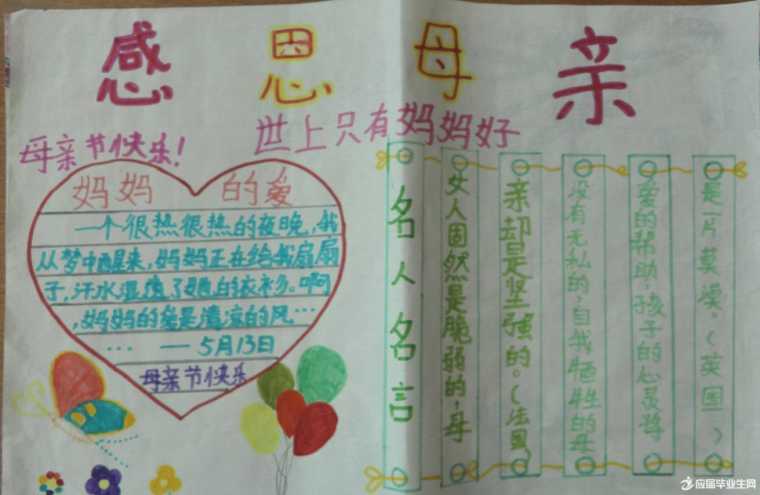 感恩母亲
世上只有妈妈好
母亲节快乐！
妈妈的爱
一个很热很热的夜晚，我
从梦中醒来，妈妈正在给我扇扇
子，汗水湿透了她的衣衫。啊
，妈妈的爱是清凉的风…
…—5月13日
母亲节快乐
名人名言
女人固然是脆弱的，母
亲却是坚强的。（法国）
没有无私的，自我牺牲的母
爱的帮助，孩子的心灵将
是一片荒漠。（英国）
应届毕业生网